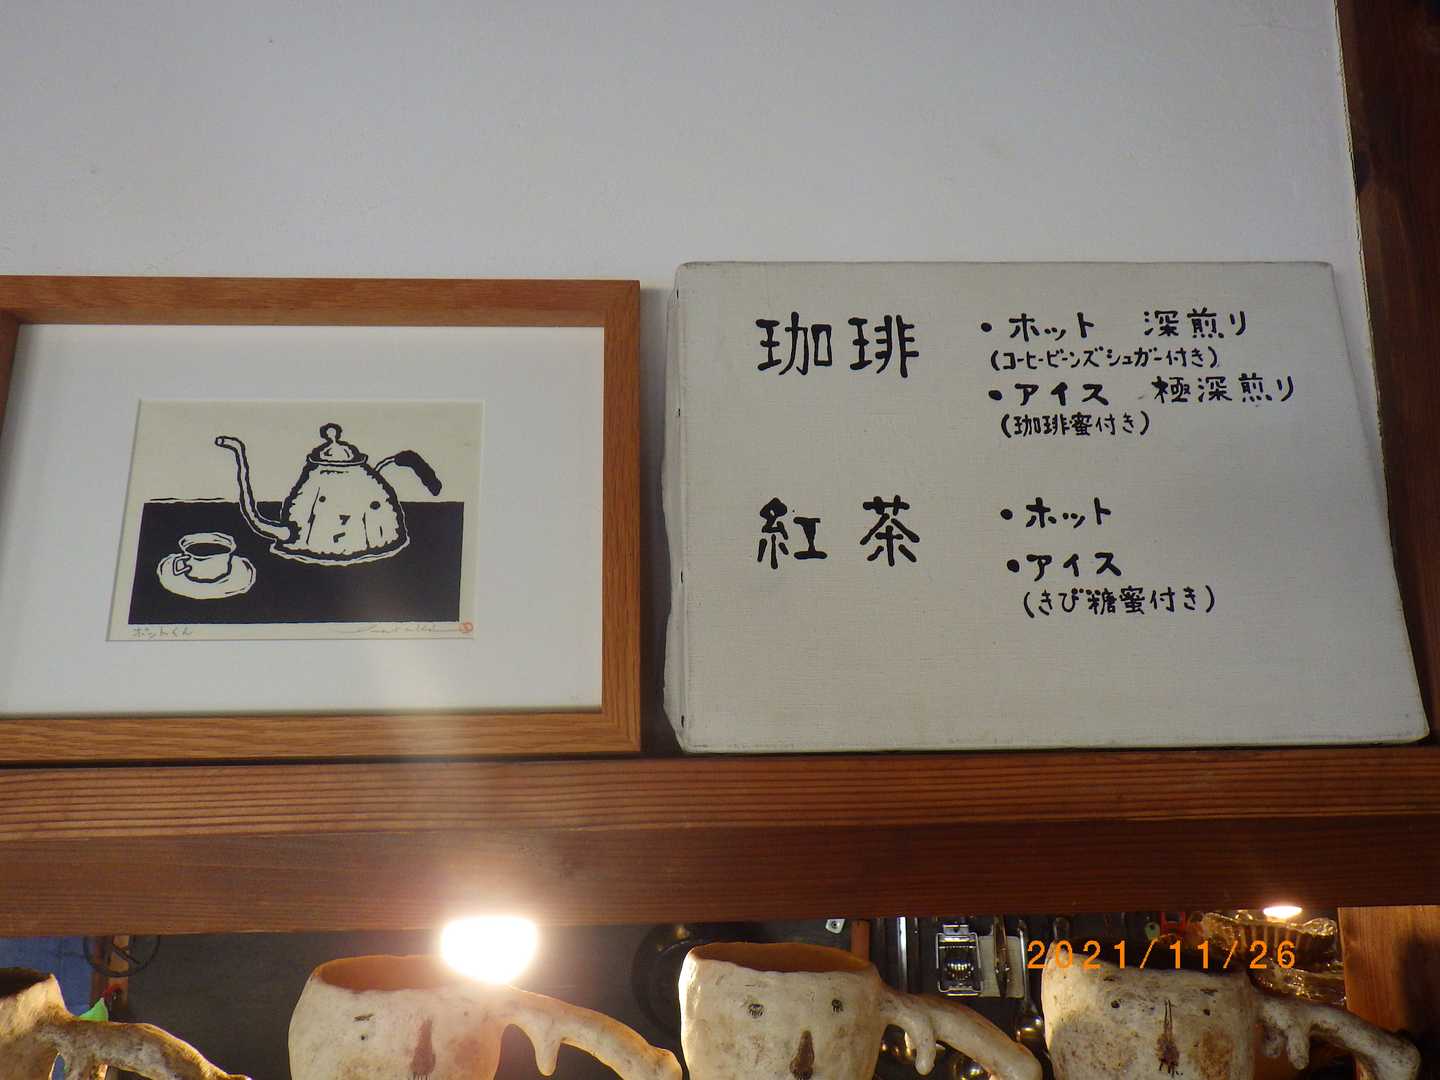 ポットくん
珈琲
・ホット 深煎り
(コーヒービーンズシュガー付き)
・アイス 極深煎り
(珈琲蜜付き)
紅茶
・ホット
・アイス
(きび糖蜜付き)
2021/11/26